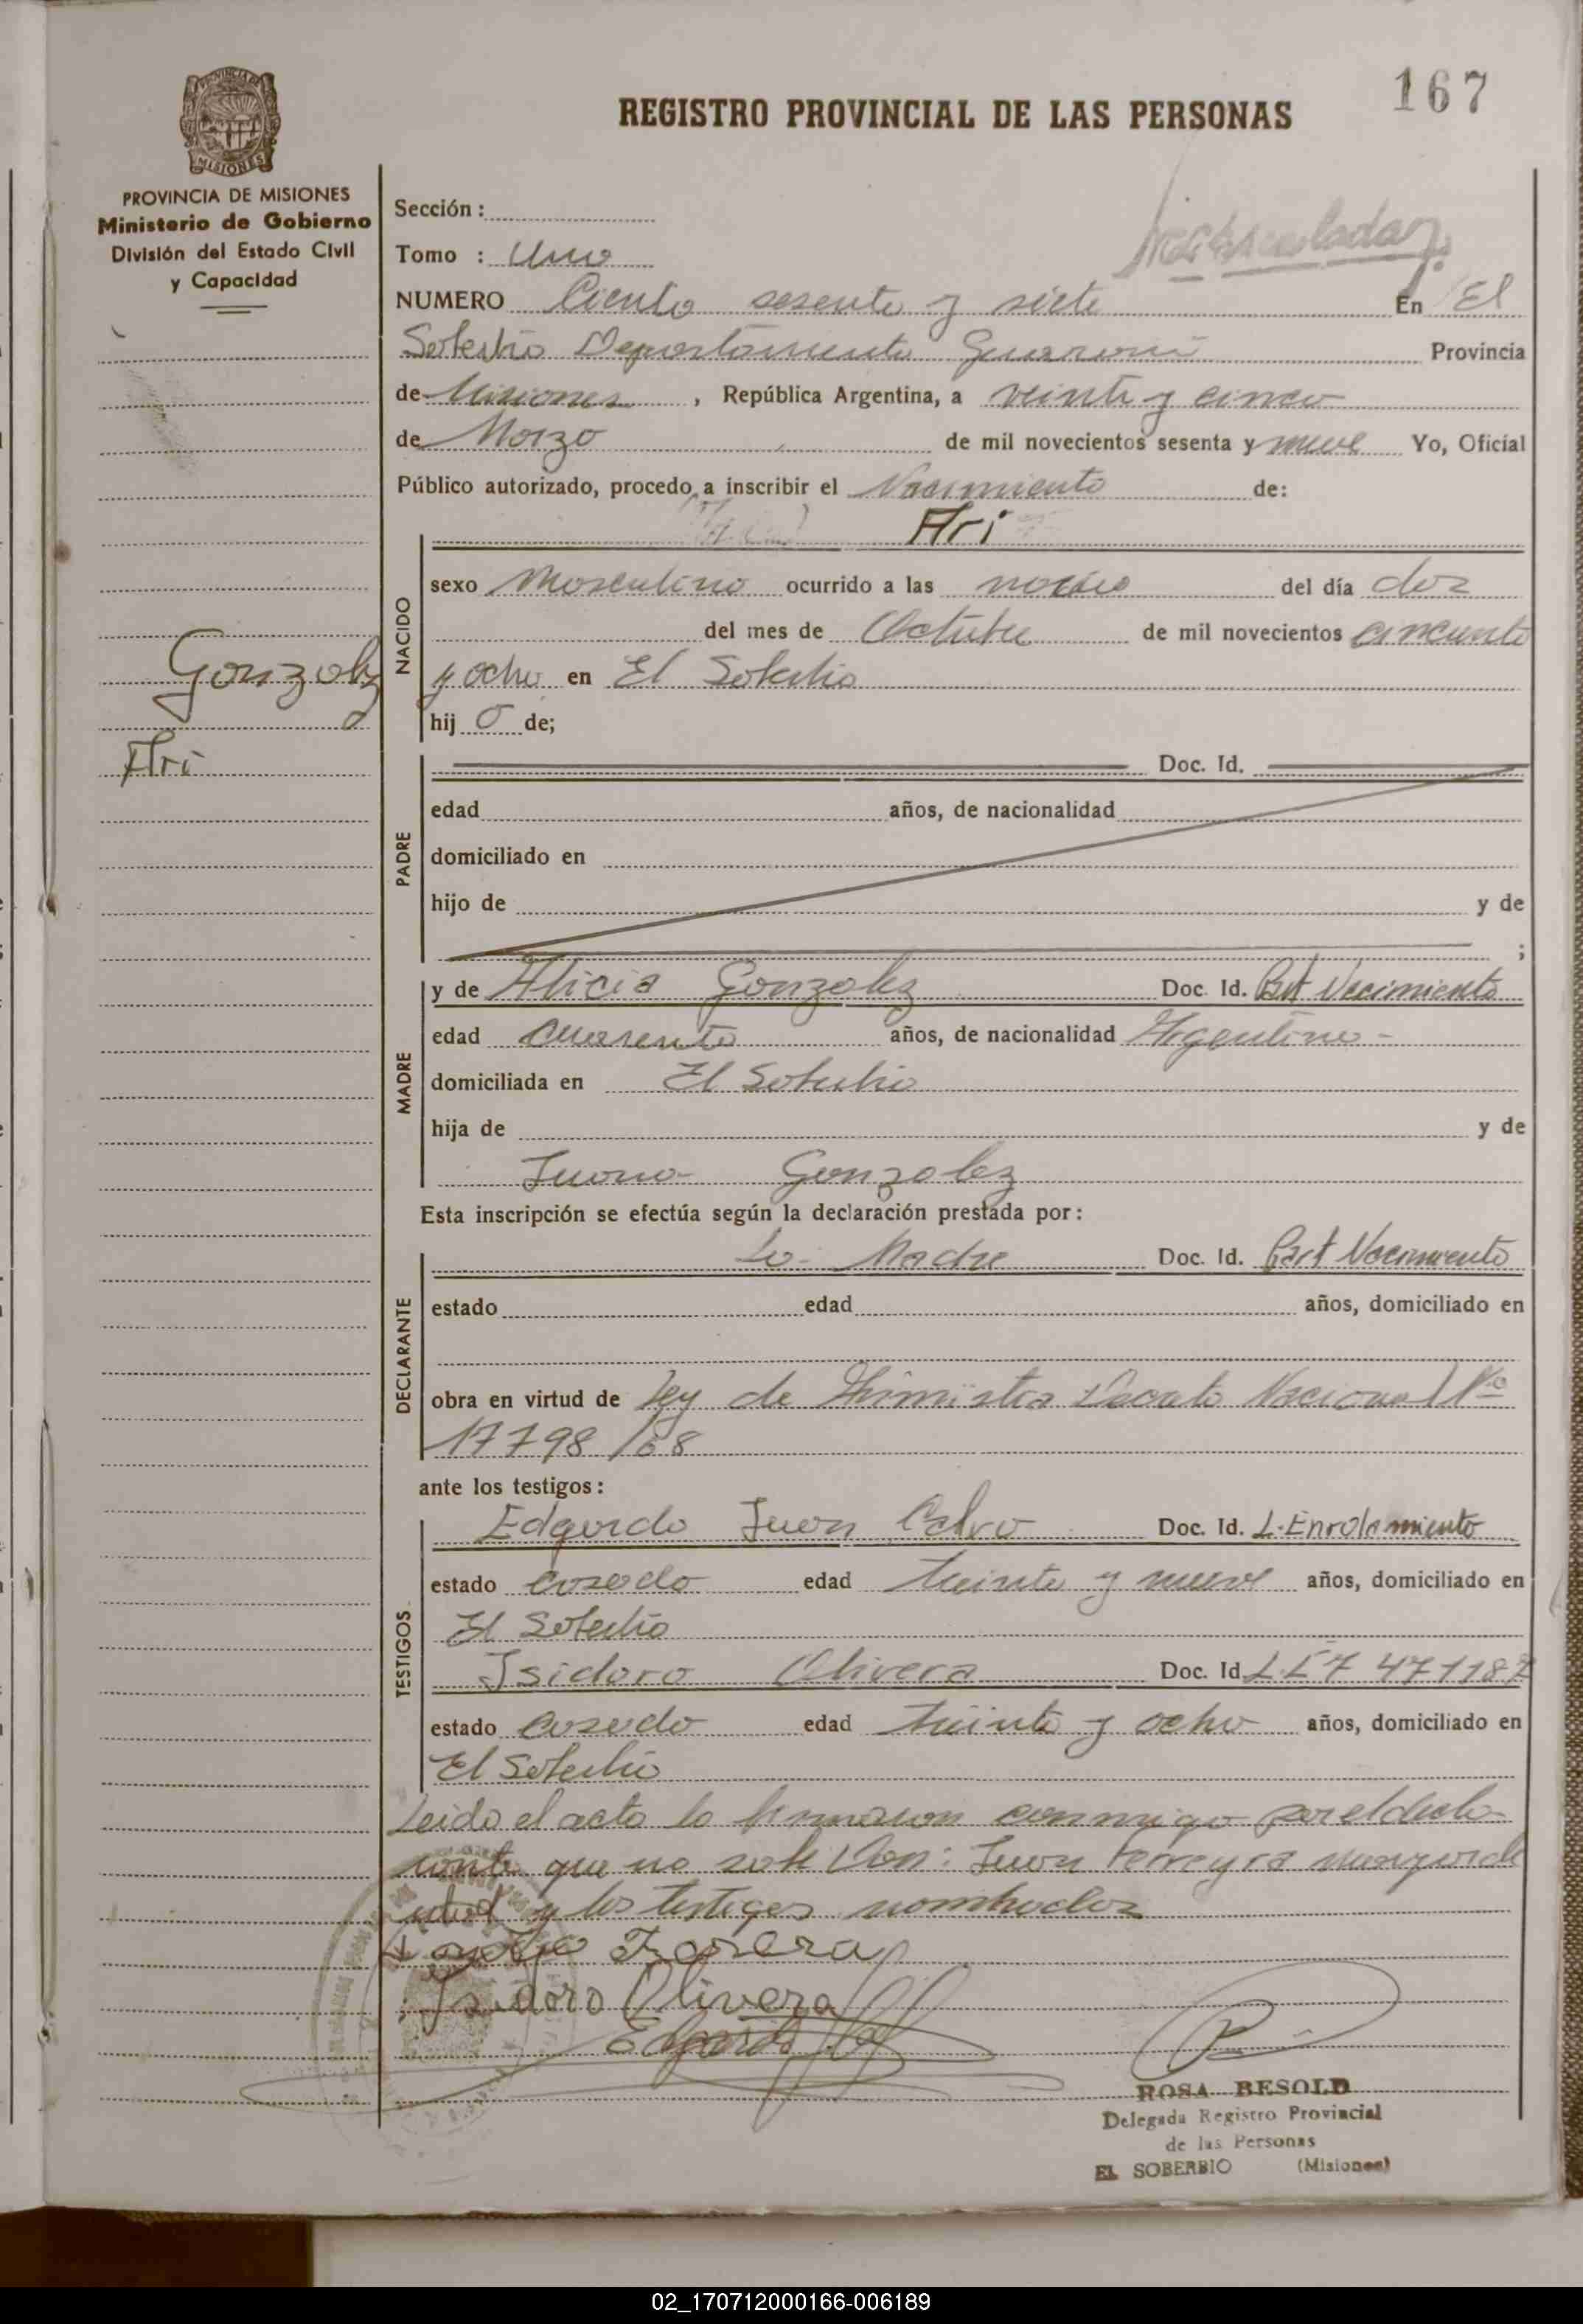 167
REGISTRO PROVINCIAL DE LAS PERSONAS
MISIONES
PROVINCIA DE MISIONES
Ministerio de Gobierno
División del Estado Civil
y Capacidad
Sección :
Tomo : Uno
NUMERO Ciento sesenta y siete En El
Soberbio Departamento Guaraní Provincia
de Misiones , República Argentina, a veinte y cinco
de Marzo de mil novecientos sesenta y nueve Yo, Oficial
Público autorizado, procedo a inscribir el Nacimiento de:
Ari
NACIDO
sexo Masculino ocurrido a las del día dos
del mes de Octubre de mil novecientos cincuenta
y ocho en El Soberbio
hij o de;
Gonzalez
Ari
PADRE
Doc. Id.
edad años, de nacionalidad
domiciliado en
hijo de y de
;
MADRE
y de Alicia Gonzalez Doc. Id. Part Nacimiento
edad cuarenta años, de nacionalidad Argentina -
domiciliada en El Soberbio
hija de y de
Juana Gonzalez
Esta inscripción se efectúa según la declaración prestada por:
DECLARANTE
La Madre Doc. Id. Part Nacimiento
estado edad años, domiciliado en
obra en virtud de Ley de Amnistia Decreto Nacional Nº
17798/68
ante los testigos:
TESTIGOS
Edgardo Juan Calvo Doc. Id. L. Enrolamiento
estado casado edad treinta y nueve años, domiciliado en
El Soberbio
Isidoro Olivera Doc. Id. L.E 7 471187
estado casado edad treinta y ocho años, domiciliado en
El Soberbio
Leido el acta la firmaron conmigo por el decla-
rante que no sabe Don: Juan Ferreyra
y los testigos nombrados
Isidoro Olivera
ROSA BESOLD
Delegada Registro Provincial
de las Personas
EL SOBERBIO (Misiones)
02_170712000166-006189